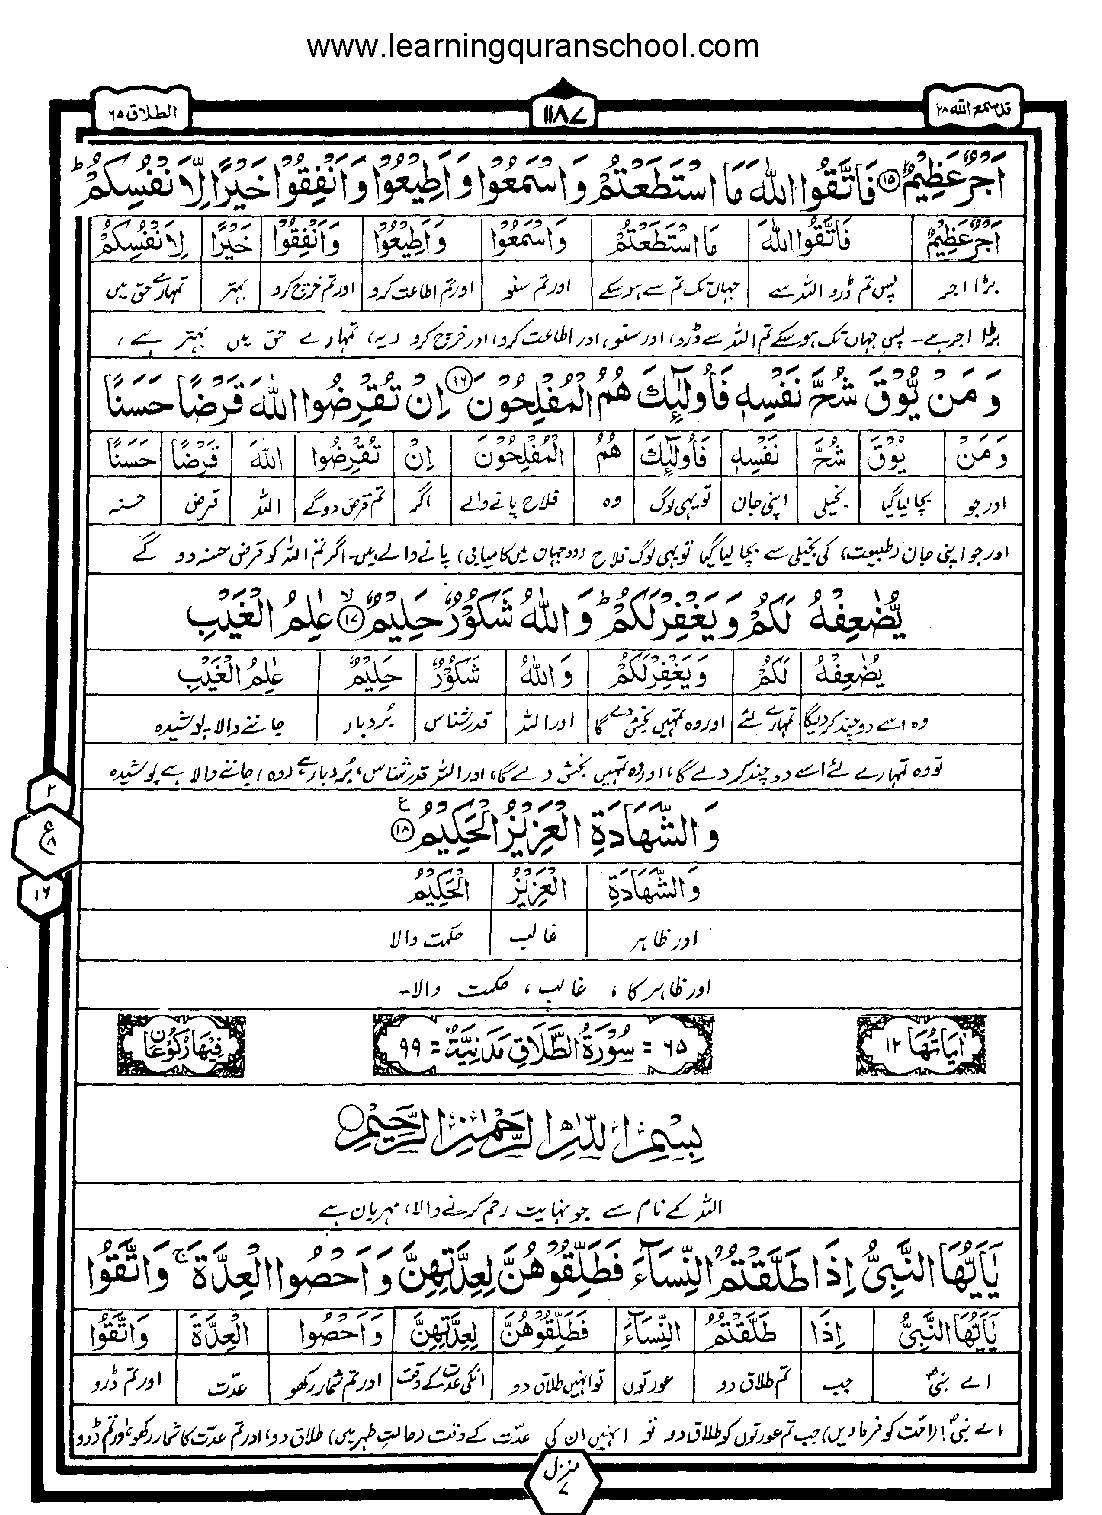 www.learningquranschool.com
قد سمع الله ۲۸
۱۱۸۷
الطلاق ۶۵
اَجْرٌ عَظِيْمٌ ۝۱۵ فَاتَّقُوا اللّٰهَ مَا اسْتَطَعْتُمْ وَاسْمَعُوْا وَاَطِيْعُوْا وَاَنْفِقُوْا خَيْرًا لِّاَنْفُسِكُمْ ؕ
اَجْرٌ عَظِيْمٌ فَاتَّقُوا اللّٰهَ مَا اسْتَطَعْتُمْ وَاسْمَعُوْا وَاَطِيْعُوْا وَاَنْفِقُوْا خَيْرًا لِّاَنْفُسِكُمْ
بڑا اجر پس تم ڈرو اللہ سے جہاں تک تم سے ہو سکے اور تم سنو اور تم اطاعت کرو اور تم خرچ کرو بہتر تمہارے حق میں
بڑا اجر ہے۔ پس جہاں تک ہو سکے تم اللہ سے ڈرو، اور سنو، اور اطاعت کرو، اور خرچ کرو (یہ) تمہارے حق میں بہتر ہے،
وَمَنْ يُّوْقَ شُحَّ نَفْسِهٖ فَاُولٰٓئِكَ هُمُ الْمُفْلِحُوْنَ ۝۱۶ اِنْ تُقْرِضُوا اللّٰهَ قَرْضًا حَسَنًا
وَمَنْ يُّوْقَ شُحَّ نَفْسِهٖ فَاُولٰٓئِكَ هُمُ الْمُفْلِحُوْنَ اِنْ تُقْرِضُوا اللّٰهَ قَرْضًا حَسَنًا
اور جو بچا لیا گیا بخیلی اپنی جان تو یہی لوگ وہ فلاح پانے والے اگر تم قرض دو گے اللہ قرض حسنہ
اور جو اپنی جان (طبیعت) کی بخیلی سے بچا لیا گیا تو یہی لوگ فلاح (دو جہان میں کامیابی) پانے والے ہیں۔ اگر تم اللہ کو قرض حسنہ دو گے
يُّضٰعِفْهُ لَكُمْ وَيَغْفِرْ لَكُمْ ؕ وَاللّٰهُ شَكُوْرٌ حَلِيْمٌ ۝۱۷ۙ عٰلِمُ الْغَيْبِ
يُّضٰعِفْهُ لَكُمْ وَيَغْفِرْ لَكُمْ وَاللّٰهُ شَكُوْرٌ حَلِيْمٌ عٰلِمُ الْغَيْبِ
وہ اسے دو چند کر دیگا تمہارے لئے اور وہ تمہیں بخش دے گا اور اللہ قدر شناس بُردبار جاننے والا پوشیدہ
تو وہ تمہارے لئے اسے دو چند کر دے گا، اور وہ تمہیں بخش دے گا، اور اللہ قدر شناس، بُردبار ہے، (وہ) جاننے والا ہے پوشیدہ
۲
ع
۸
۱۶
وَالشَّهَادَةِ الْعَزِيْزُ الْحَكِيْمُ ۝۱۸ ع
وَالشَّهَادَةِ الْعَزِيْزُ الْحَكِيْمُ
اور ظاہر غالب حکمت والا
اور ظاہر کا، غالب، حکمت والا۔
اٰيَاتُهَا ۱۲
۶۵ = سُوْرَةُ الطَّلَاقِ مَدَنِيَّةٌ = ۹۹
فِيْهَا رُكُوْعَانِ
بِسْمِ اللّٰهِ الرَّحْمٰنِ الرَّحِيْمِ
اللہ کے نام سے جو نہایت رحم کرنے والا، مہربان ہے
يٰۤاَيُّهَا النَّبِيُّ اِذَا طَلَّقْتُمُ النِّسَآءَ فَطَلِّقُوْهُنَّ لِعِدَّتِهِنَّ وَاَحْصُوا الْعِدَّةَ ۚ وَاتَّقُوا
يٰۤاَيُّهَا النَّبِيُّ اِذَا طَلَّقْتُمُ النِّسَآءَ فَطَلِّقُوْهُنَّ لِعِدَّتِهِنَّ وَاَحْصُوا الْعِدَّةَ وَاتَّقُوا
اے نبیؐ جب تم طلاق دو عورتوں تو انہیں طلاق دو انکی عدت کے وقت اور تم شمار رکھو عدّت اور تم ڈرو
اے نبیؐ! (امت کو فرما دیں) جب تم عورتوں کو طلاق دو تو انہیں ان کی عدّت کے وقت (حالتِ طہر میں) طلاق دو، اور تم عدت کا شمار رکھو، اور تم ڈرو
منزل
۷